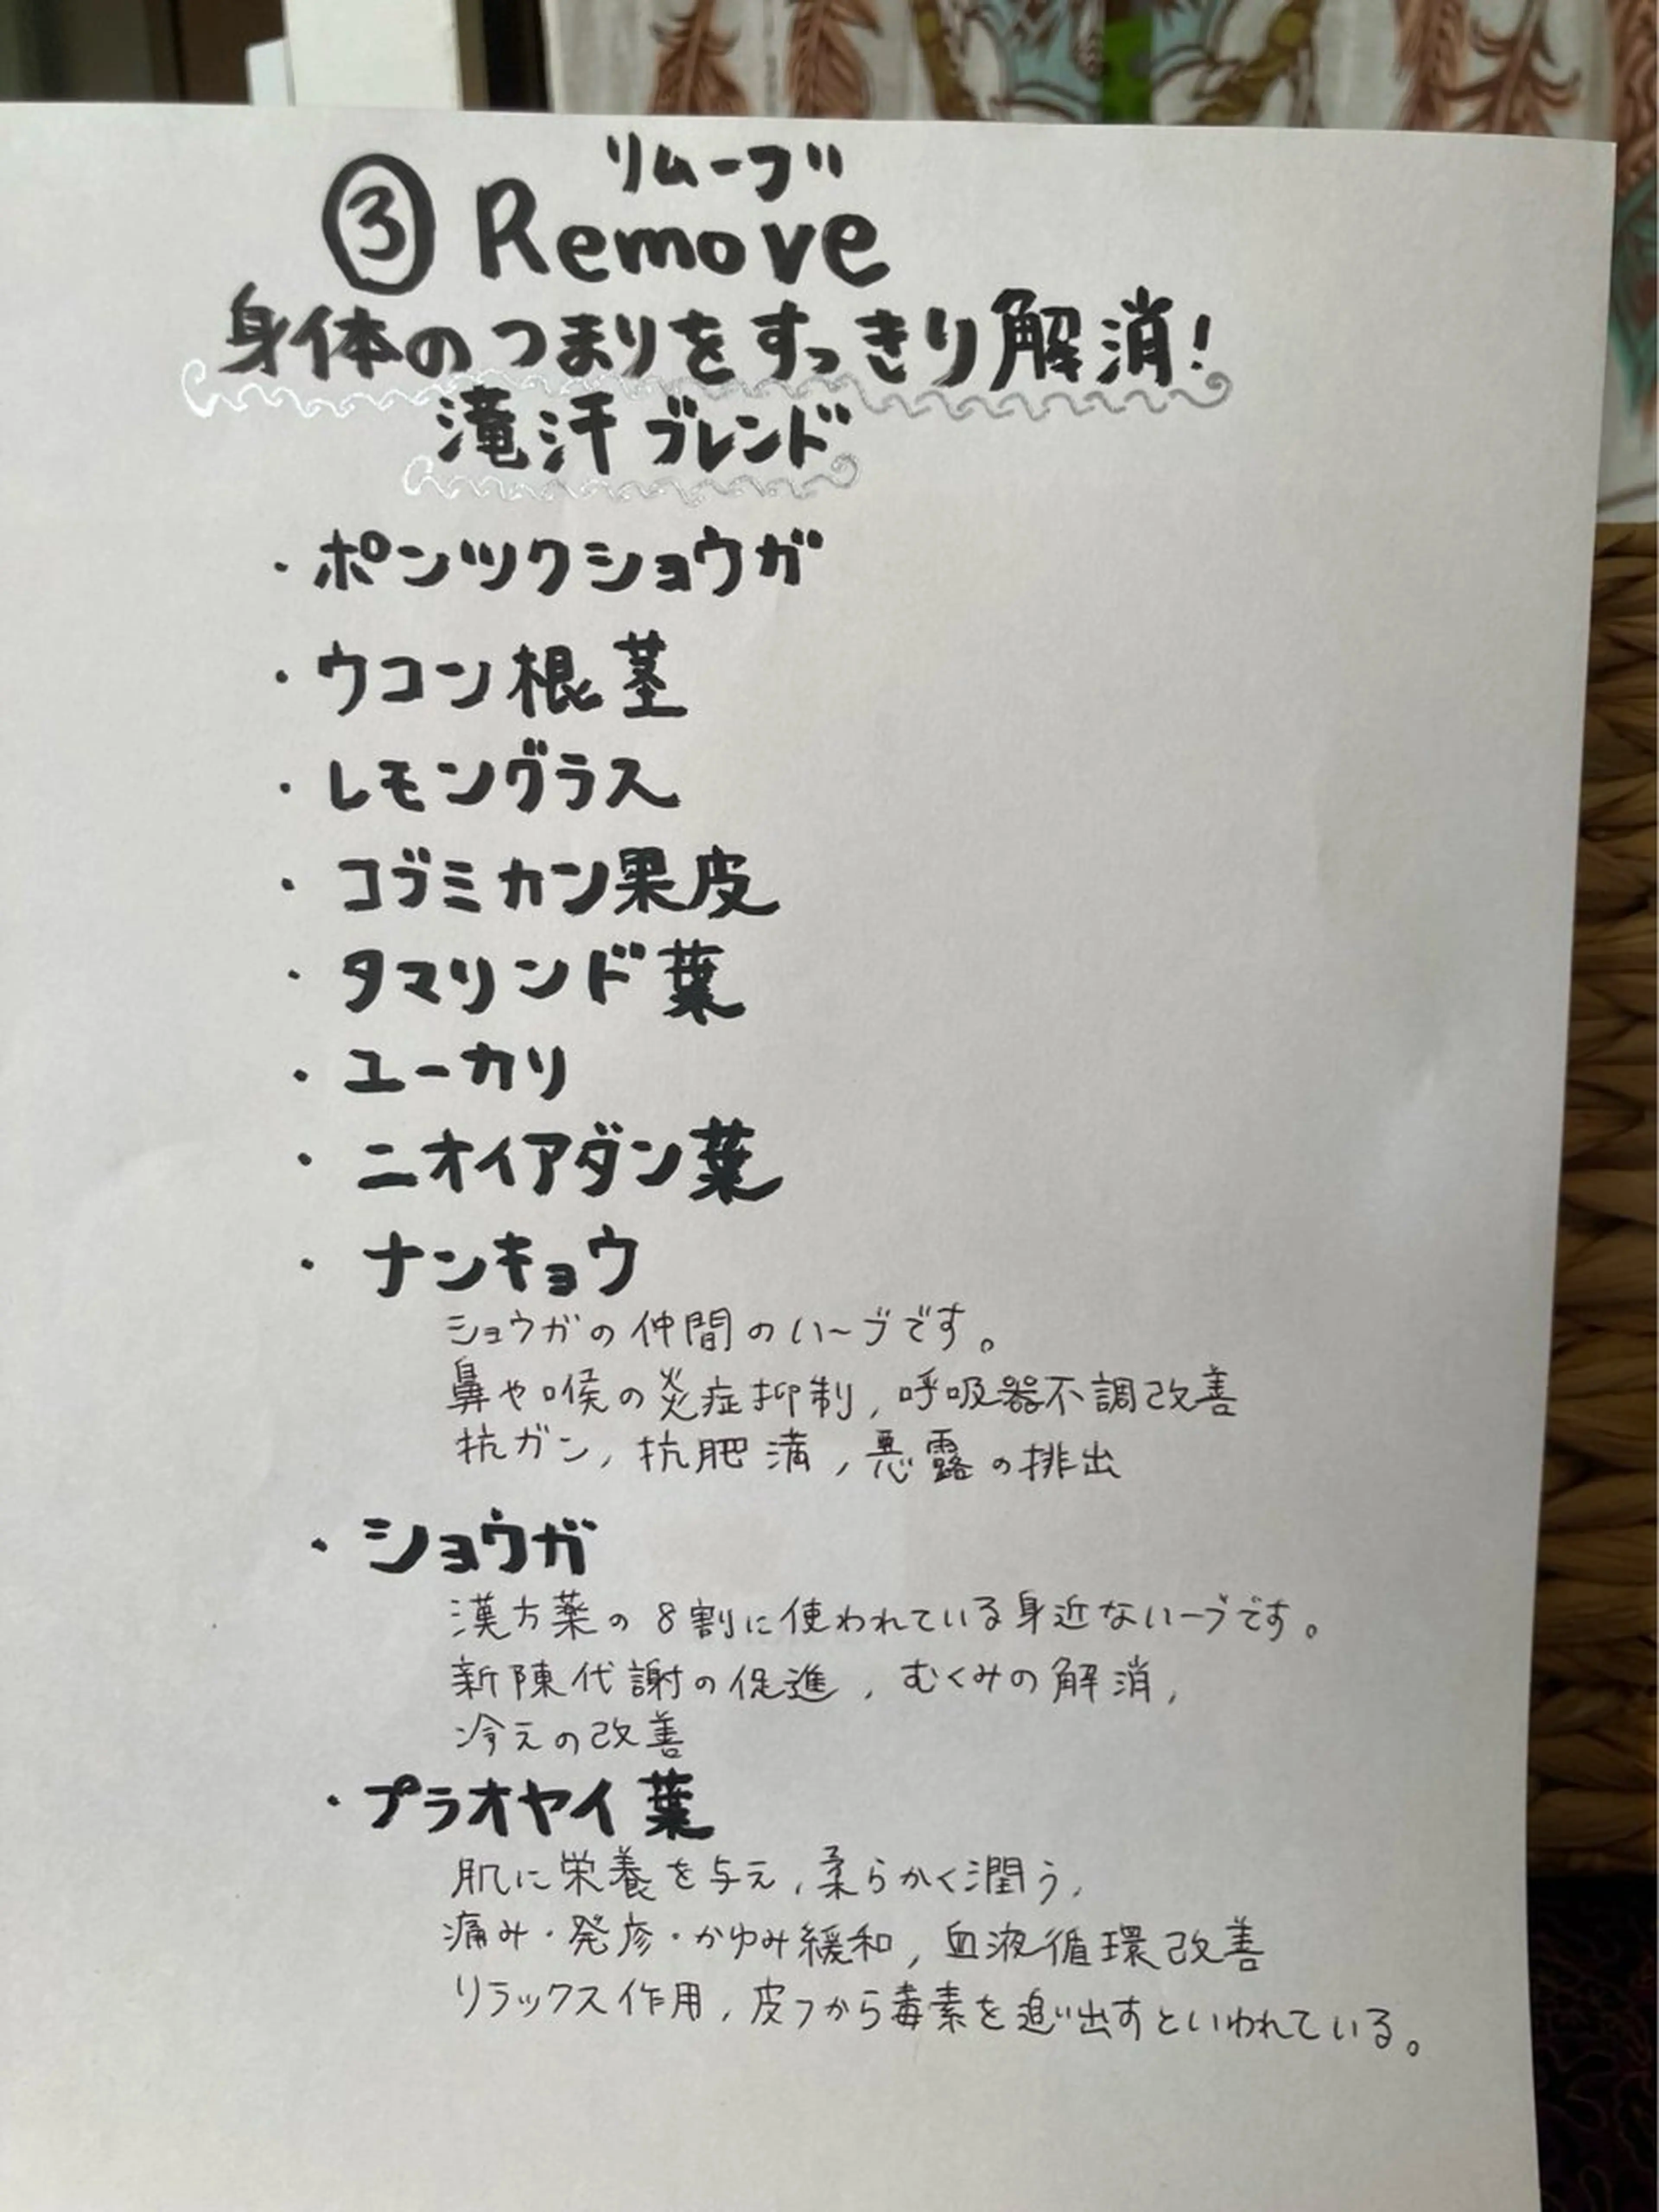 リムーブ
③ Remove
身体のつまりをすっきり解消！
滝汗ブレンド
・ポンツクショウガ
・ウコン根茎
・レモングラス
・コブミカン果皮
・タマリンド葉
・ユーカリ
・ニオイアダン葉
・ナンキョウ
ショウガの仲間のハーブです。
鼻や喉の炎症抑制，呼吸器不調改善
抗ガン，抗肥満，悪露の排出
・ショウガ
漢方薬の8割に使われている身近なハーブです。
新陳代謝の促進，むくみの解消，
冷えの改善
・プラオヤイ葉
肌に栄養を与え，柔らかく潤う，
痛み・発疹・かゆみ緩和，血液循環改善
リラックス作用，皮フから毒素を追い出すといわれている。